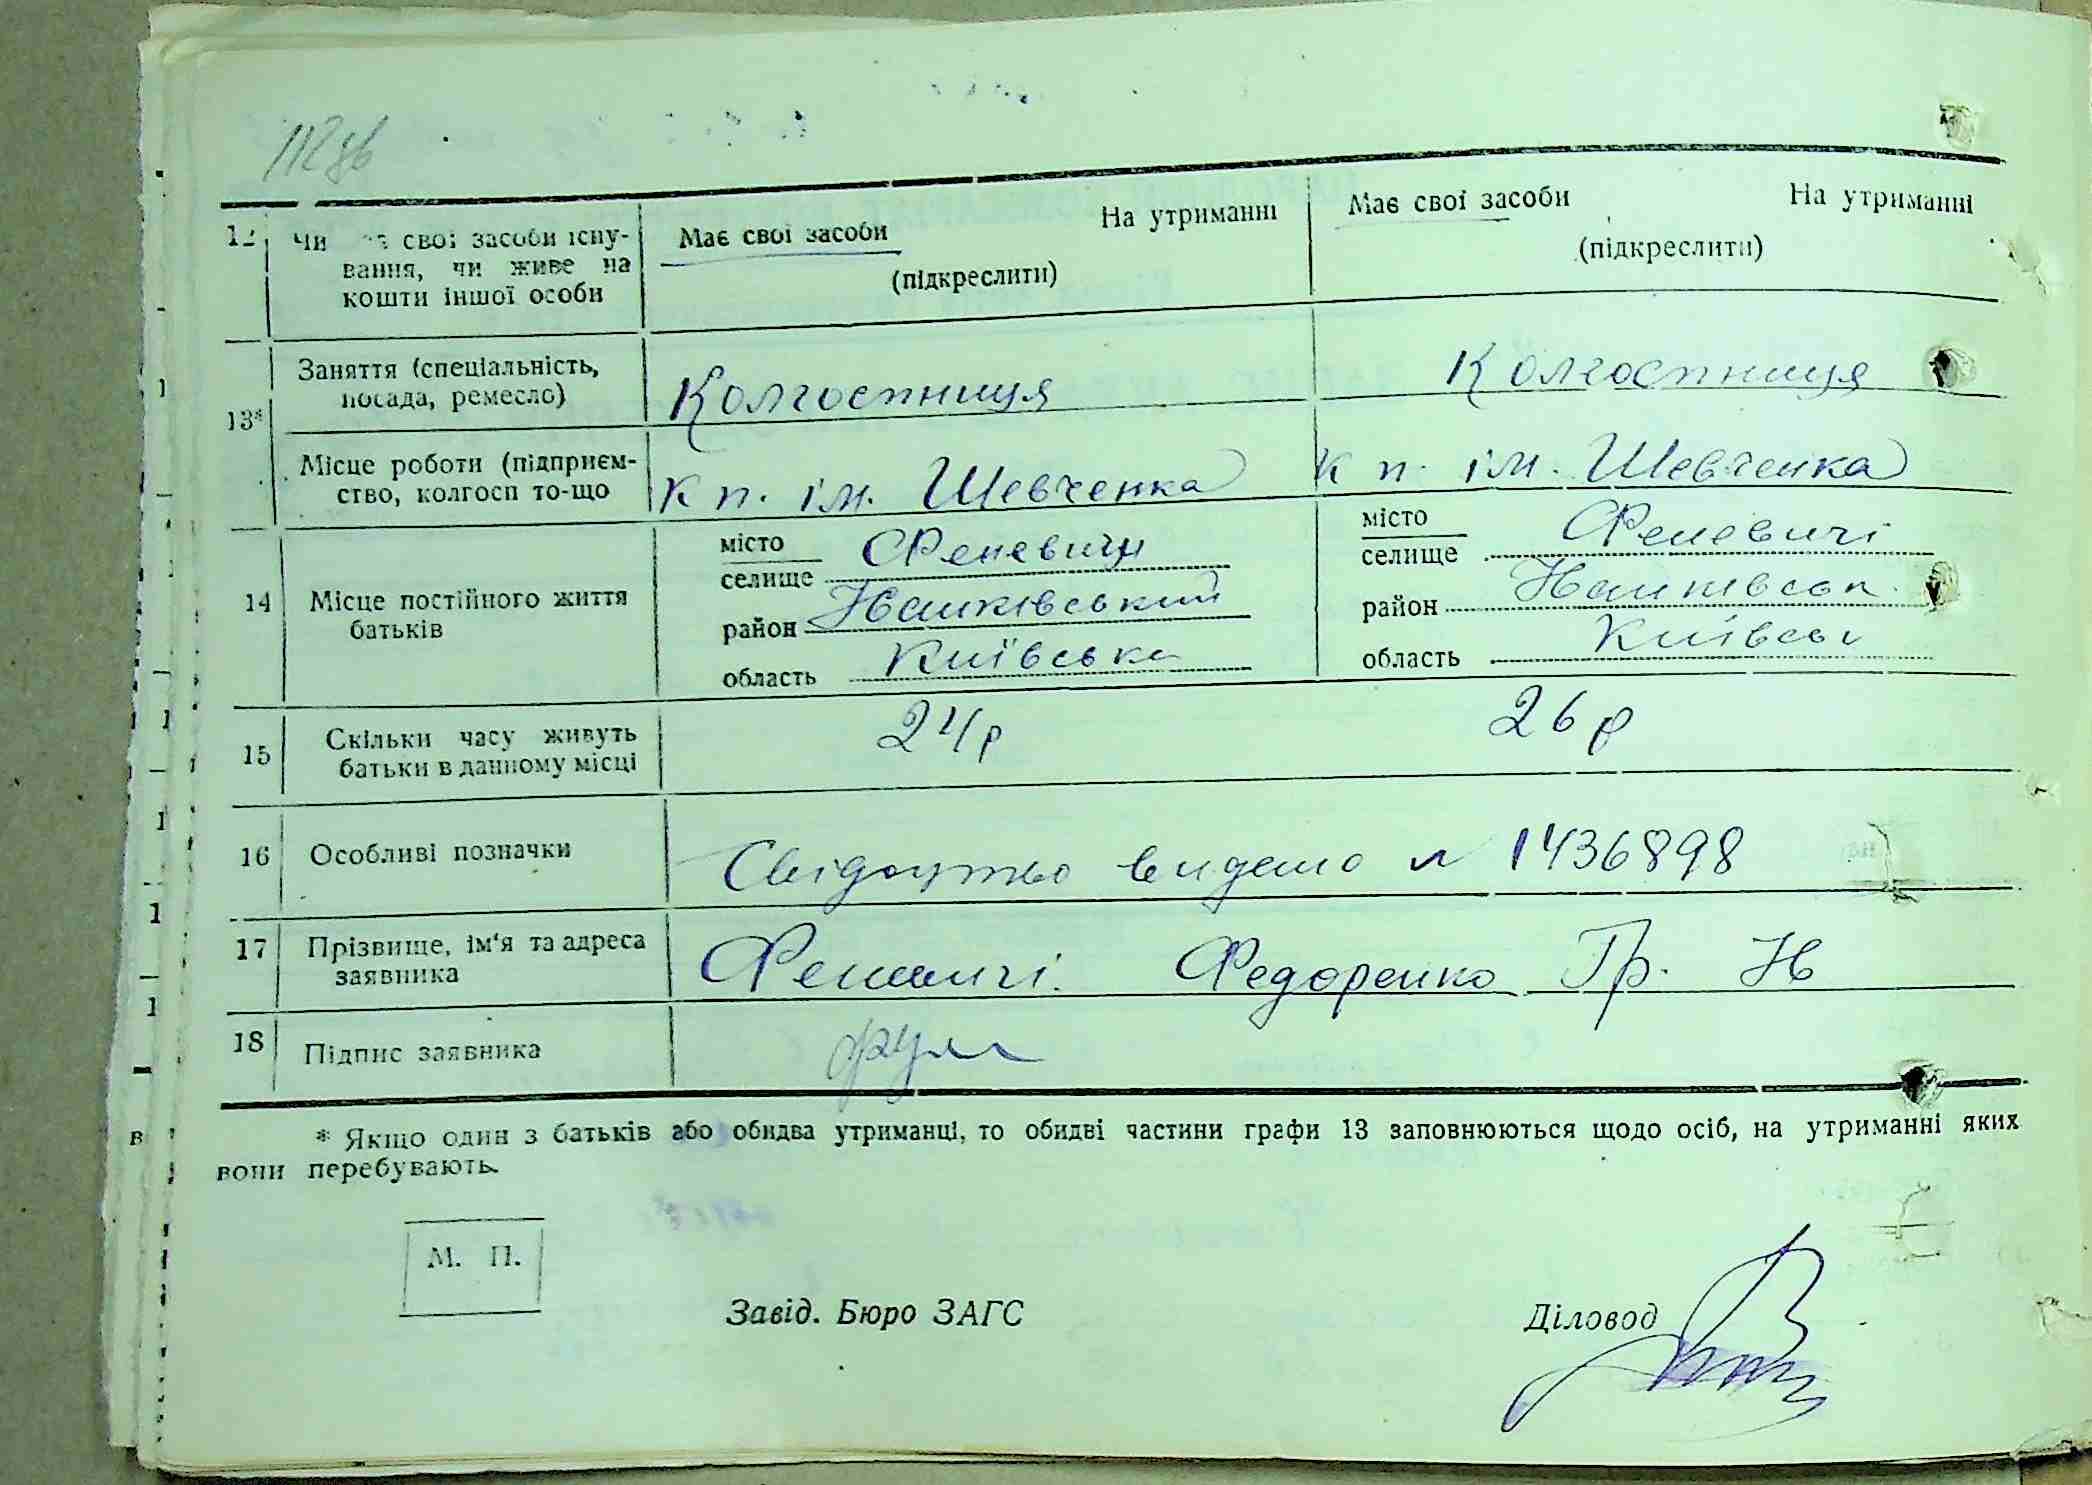 112зв
12 Чи свої засоби існу-
вання, чи живе на
кошти іншої особи
Має свої засоби На утриманні
(підкреслити)
Має свої засоби На утриманні
(підкреслити)
13*
Заняття (спеціальність,
посада, ремесло)
Колгоспниця
Колгоспниця
Місце роботи (підприєм-
ство, колгосп то-що
к п. ім. Шевченка
к п. ім. Шевченка
14 Місце постійного життя
батьків
місто
селище Феневичи
район Іванківський
область Київська
місто
селище Феневичі
район Іванківськ.
область Київськ
15 Скільки часу живуть
батьки в данному місці
24р
26р
16 Особливі позначки
Свідоцтво видано № 1436898
17 Прізвище, ім'я та адреса
заявника
Феневичі. Федоренко Гр. Ів
18 Підпис заявника
* Якщо один з батьків або обидва утриманці, то обидві частини графи 13 заповнюються щодо осіб, на утриманні яких
вони перебувають.
М. П.
Завід. Бюро ЗАГС
Діловод